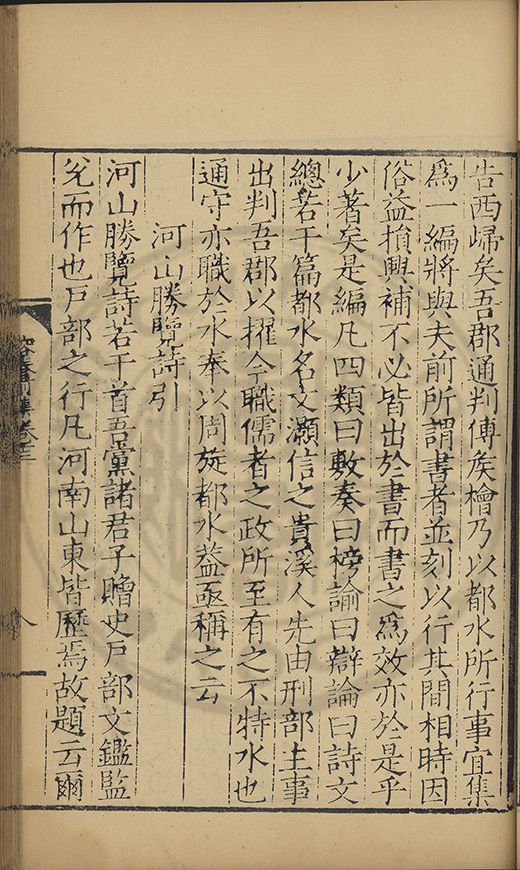 告西歸矣吾郡通判傅矦檜乃以都水所行事宜集
爲一編將與夫前所謂書者並刻以行其間相時因
俗益損興補不必皆出於書而書之爲效亦於是乎
少著矣是編凡四類曰敷奏曰榜諭曰辯論曰詩文
總若干篇都水名文灝信之貴溪人先由刑部主事
出判吾郡以擢今職儒者之政所至有之不特水也
通守亦職於水奉以周旋都水葢亟稱之云
河山勝覽詩引
河山勝覽詩若干首吾黨諸君子贈史戸部文鑑監
兌而作也戸部之行凡河南山東皆歷焉故題云爾
卷三
八